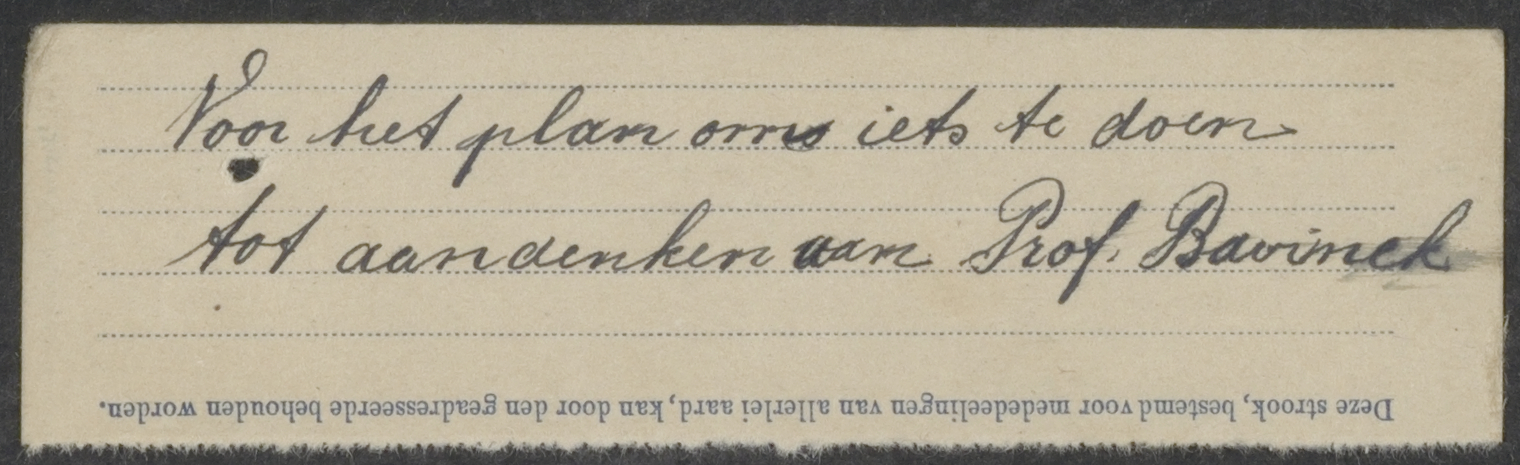 Voor het plan om iets te doen
tot aandenken aan Prof. Bavinck
Deze strook, bestemd voor mededeelingen van allerlei aard, kan door den geadresseerde behouden worden.